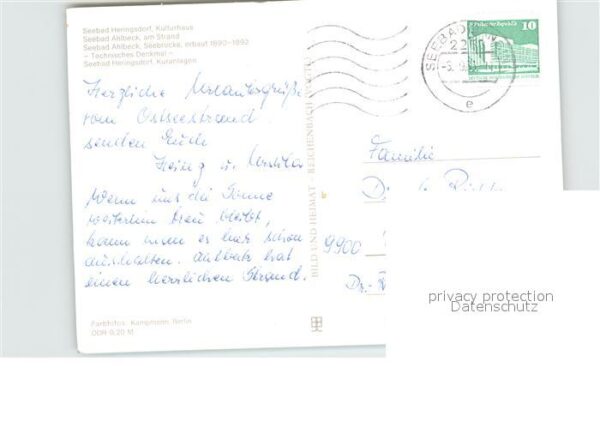 Seebad Heringsdorf, Kulturhaus
Seebad Ahlbeck, am Strand
Seebad Ahlbeck, Seebrücke, erbaut 1890-1892
- Technisches Denkmal -
Seebad Heringsdorf, Kuranlagen
Herzliche Urlaubsgrüße
vom Ostseestrand
senden Euch
Heinz u.
Wenn uns die Sonne
weiterhin treu bleibt,
kann man es hier schon
aushalten. Ahlbeck hat
einen herrlichen Strand.
Farbfotos: Kampmann, Berlin
DDR 0,20 M
BILD UND HEIMAT · REICHENBACH
SEEBAD
22
e
10
Familie
9900
Dr.-
privacy protection
Datenschutz